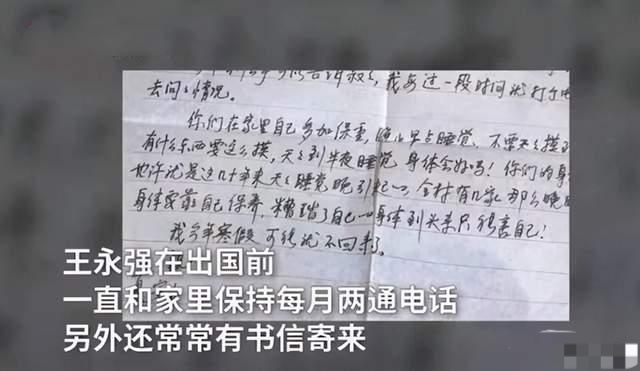 我每过一段时间就打个电
去问问情况。
你们在家里自己多加保重,晚上早点睡觉,不要天天摸
有什么东西要这么摸,天天到半夜睡觉 身体会好吗!你们的身
也许就是这几十年来天天睡觉晚引起的。全村有几家那么晚
身体要靠自己保养,糟蹋了自己的身体到头来只能害自己!
我今年寒假可能就不回来了。
王永强在出国前
一直和家里保持每月两通电话
另外还常常有书信寄来